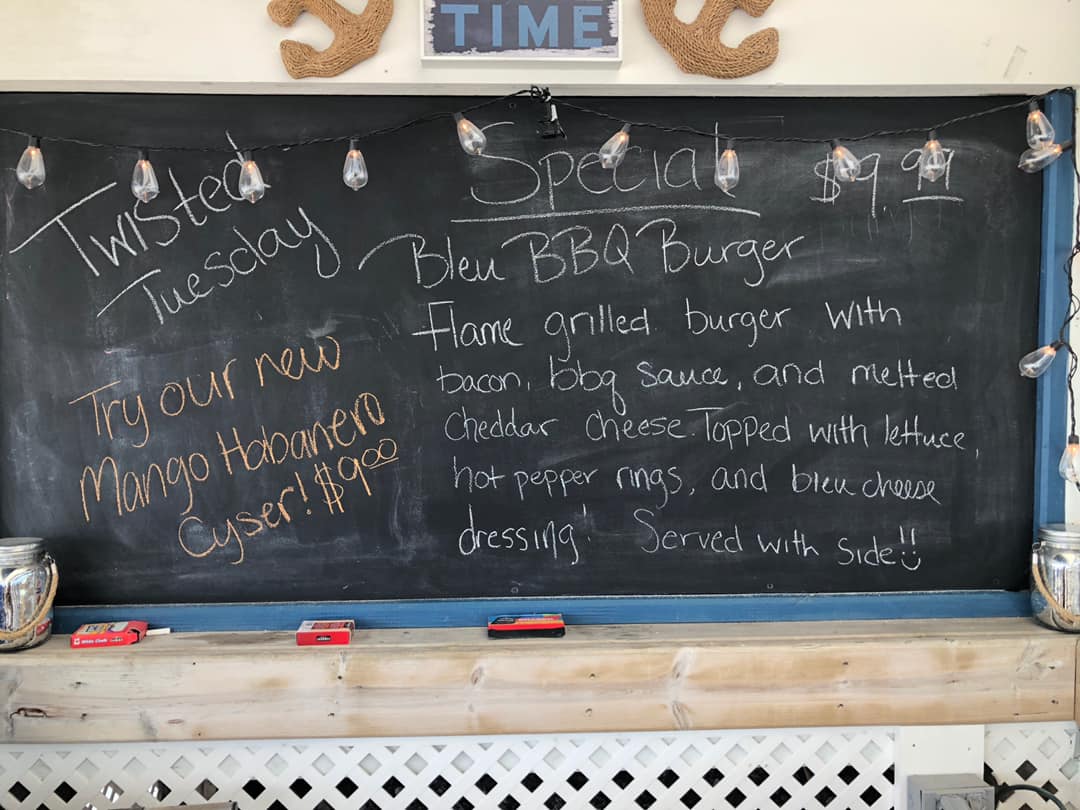 TIME
Twisted
Tuesday
Try our new
Mango Habanero
Cyser! $9.00
Special $9.99
Bleu BBQ Burger
Flame grilled burger with
bacon, bbq sauce, and melted
cheddar cheese. Topped with lettuce,
hot pepper rings, and bleu cheese
dressing! Served with side!! :)